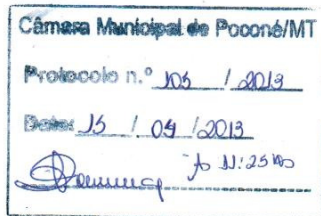 Câmara Municipal de Poconé/MT
Protocolo n.º 105 / 2013
Data: 15 / 04 / 2013
às 11:25 hs